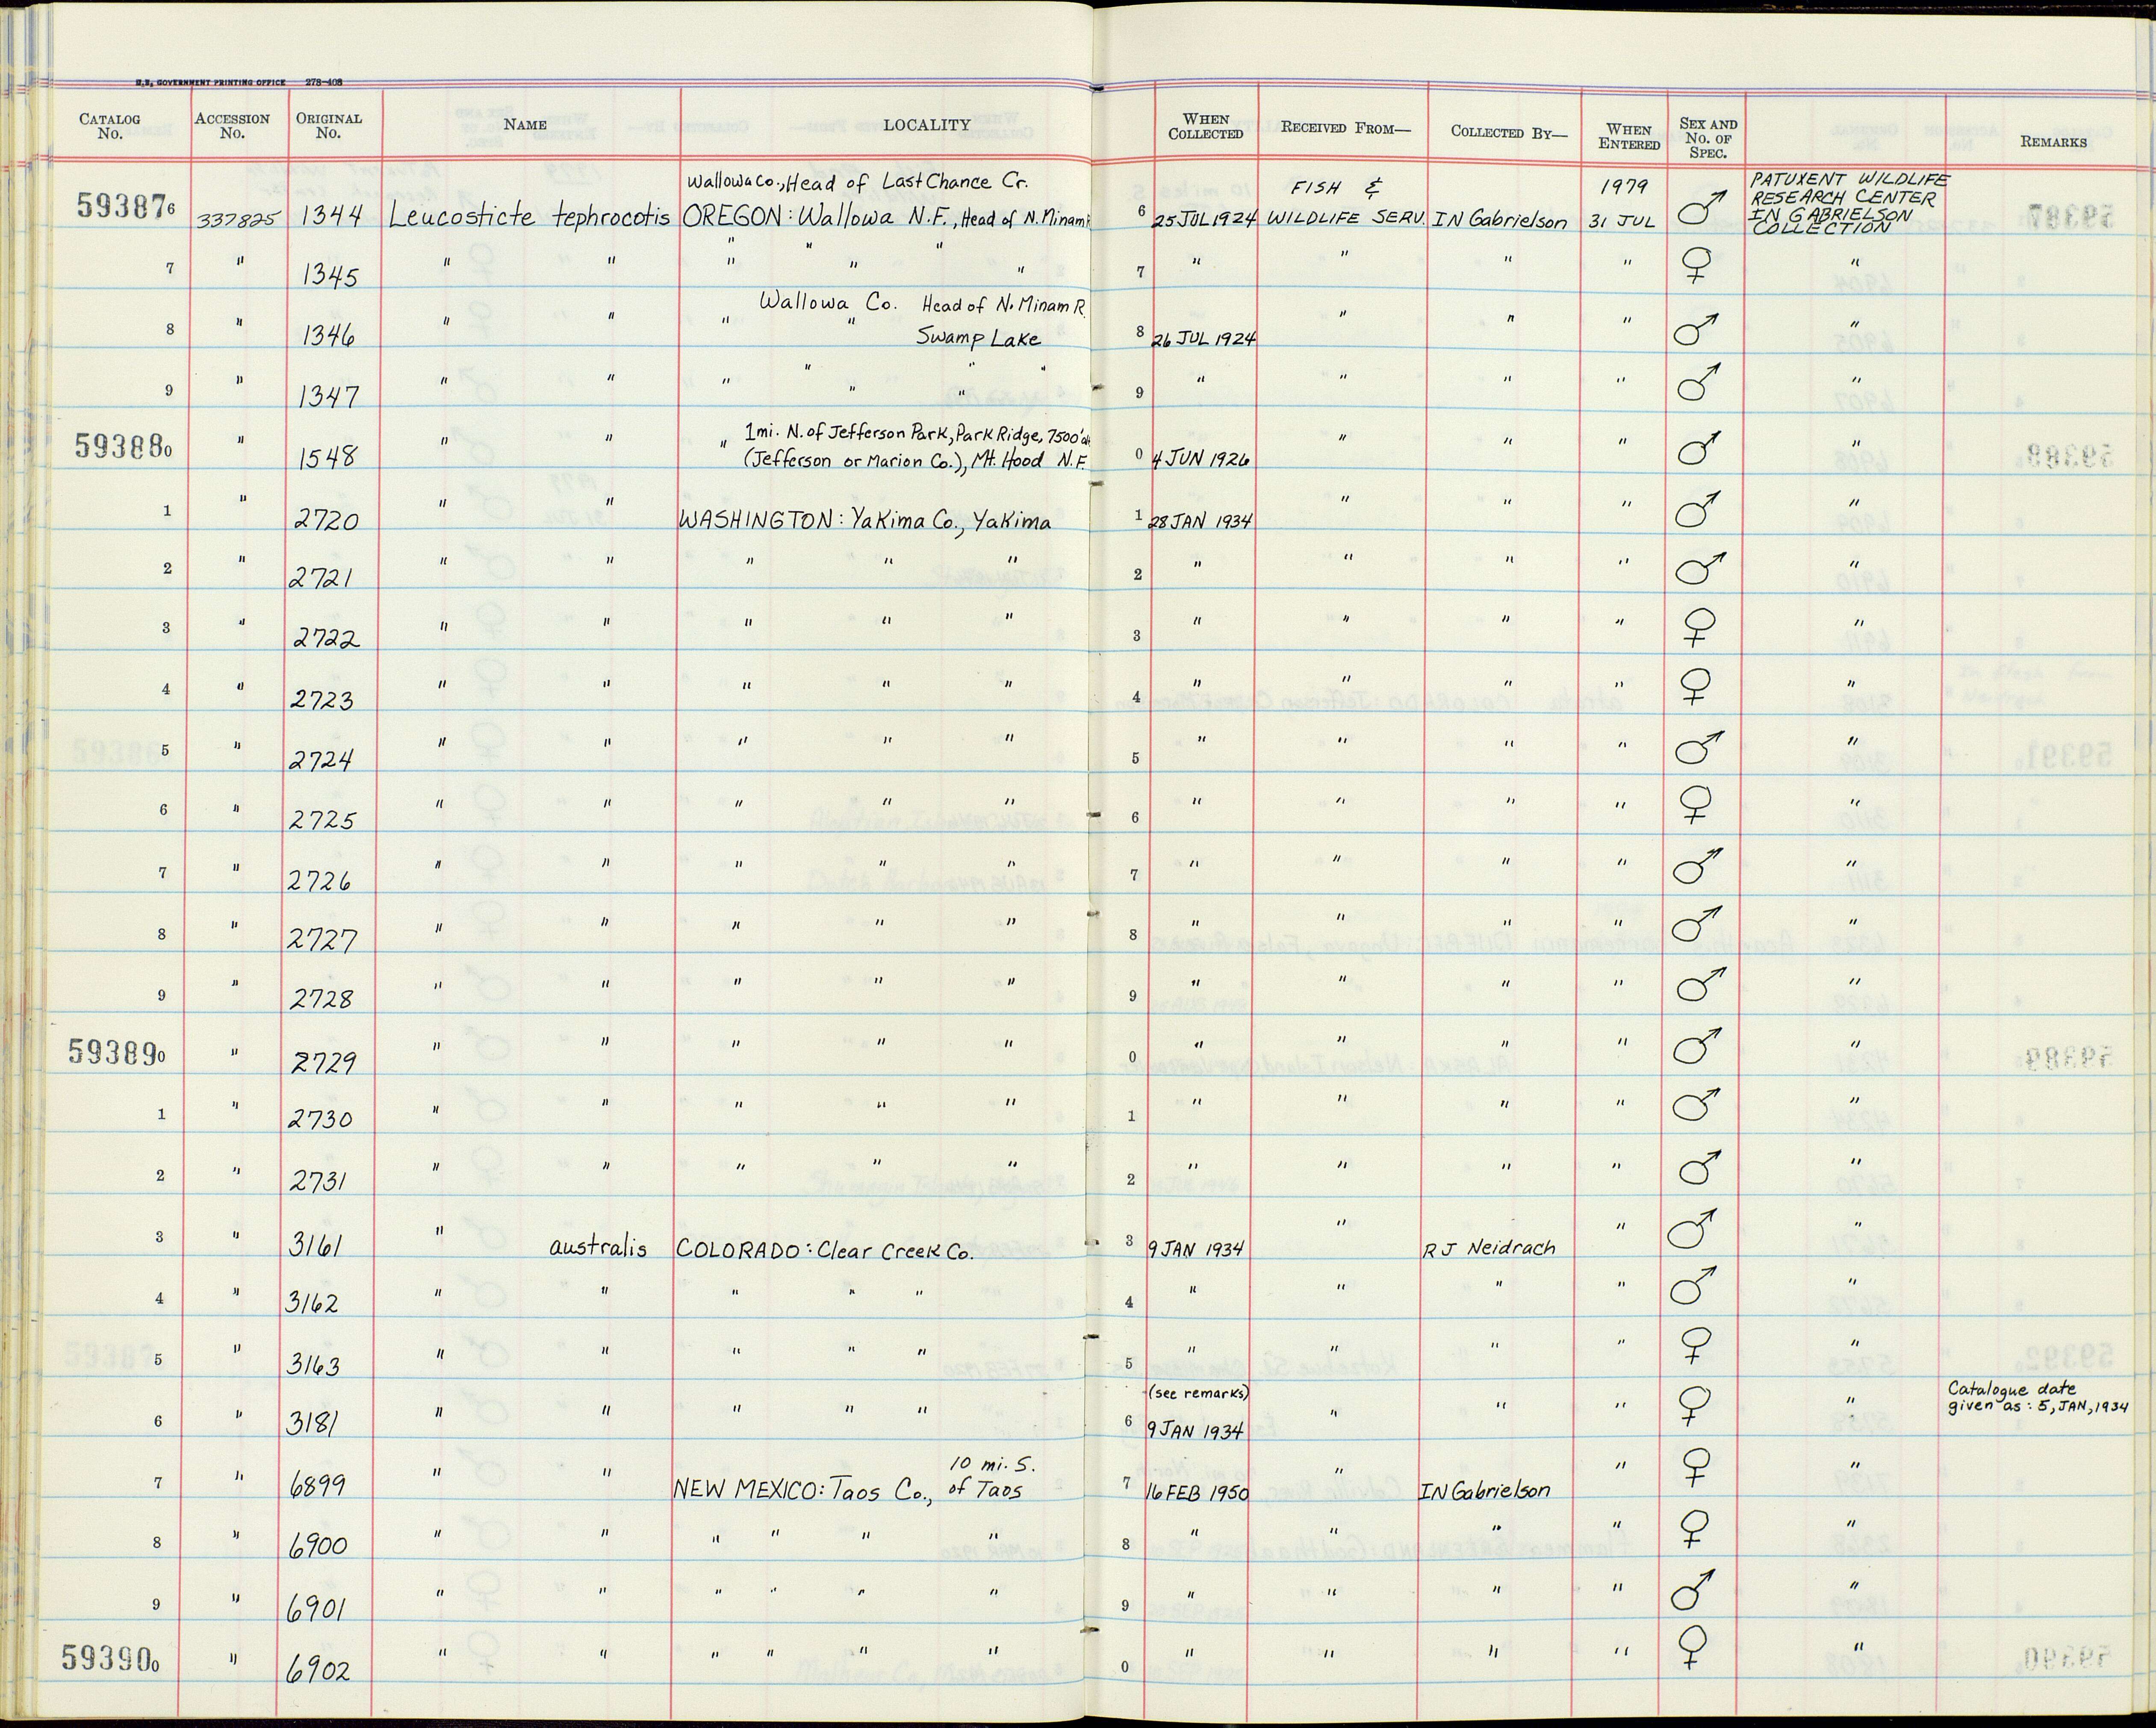 U.S. GOVERNMENT PRINTING OFFICE 278-408
CATALOG No. ACCESSION No. ORIGINAL No. NAME LOCALITY WHEN COLLECTED RECEIVED FROM— COLLECTED BY— WHEN ENTERED SEX AND No. OF SPEC. REMARKS
Wallowa Co., Head of Last Chance Cr. FISH & 1979 PATUXENT WILDLIFE RESEARCH CENTER
593876 337825 1344 Leucosticte tephrocotis OREGON: Wallowa N.F., Head of N. Minam R 6 25 JUL 1924 WILDLIFE SERV. IN Gabrielson 31 JUL ♂ IN GABRIELSON COLLECTION
7 " 1345 " " " " " " " " 7 " " " " ♀ "
Wallowa Co. Head of N. Minam R.
8 " 1346 " " " " Swamp Lake 8 26 JUL 1924 " " " ♂ "
9 " 1347 " " " " " " " 9 " " " " ♂ "
1 mi. N. of Jefferson Park, Park Ridge, 7500'
593880 " 1548 " " " (Jefferson or Marion Co.), Mt. Hood N.F. 0 4 JUN 1926 " " " ♂ "
1 " 2720 " " WASHINGTON: Yakima Co., Yakima 1 28 JAN 1934 " " " ♂ "
2 " 2721 " " " " " 2 " " " " ♂ "
3 " 2722 " " " " " 3 " " " " ♀ "
4 " 2723 " " " " " 4 " " " " ♀ "
5 " 2724 " " " " " 5 " " " " ♂ "
6 " 2725 " " " " " 6 " " " " ♀ "
7 " 2726 " " " " " 7 " " " " ♂ "
8 " 2727 " " " " " 8 " " " " ♂ "
9 " 2728 " " " " " 9 " " " " ♂ "
593890 " 2729 " " " " " 0 " " " " ♂ "
1 " 2730 " " " " " 1 " " " " ♂ "
2 " 2731 " " " " " 2 " " " " ♂ "
3 " 3161 " australis COLORADO: Clear Creek Co. 3 9 JAN 1934 " R J Neidrach " ♂ "
4 " 3162 " " " " " 4 " " " " ♂ "
5 " 3163 " " " " " 5 " " " " ♀ "
(see remarks) Catalogue date
6 " 3181 " " " " " 6 9 JAN 1934 " " " ♀ " given as: 5, JAN, 1934
10 mi. S.
7 " 6899 " " NEW MEXICO: Taos Co., of Taos 7 16 FEB 1950 " IN Gabrielson " ♀ "
8 " 6900 " " " " " " 8 " " " " ♀ "
9 " 6901 " " " " " " 9 " " " " ♂ "
593900 " 6902 " " " " " " 0 " " " " ♀ "